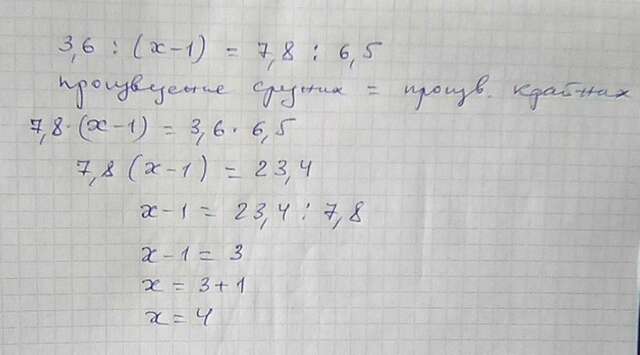 3,6 : (x-1) = 7,8 : 6,5
произведение средних = произв. крайних
7,8·(x-1) = 3,6·6,5
7,8 (x-1) = 23,4
x-1 = 23,4 : 7,8
x-1 = 3
x = 3+1
x = 4